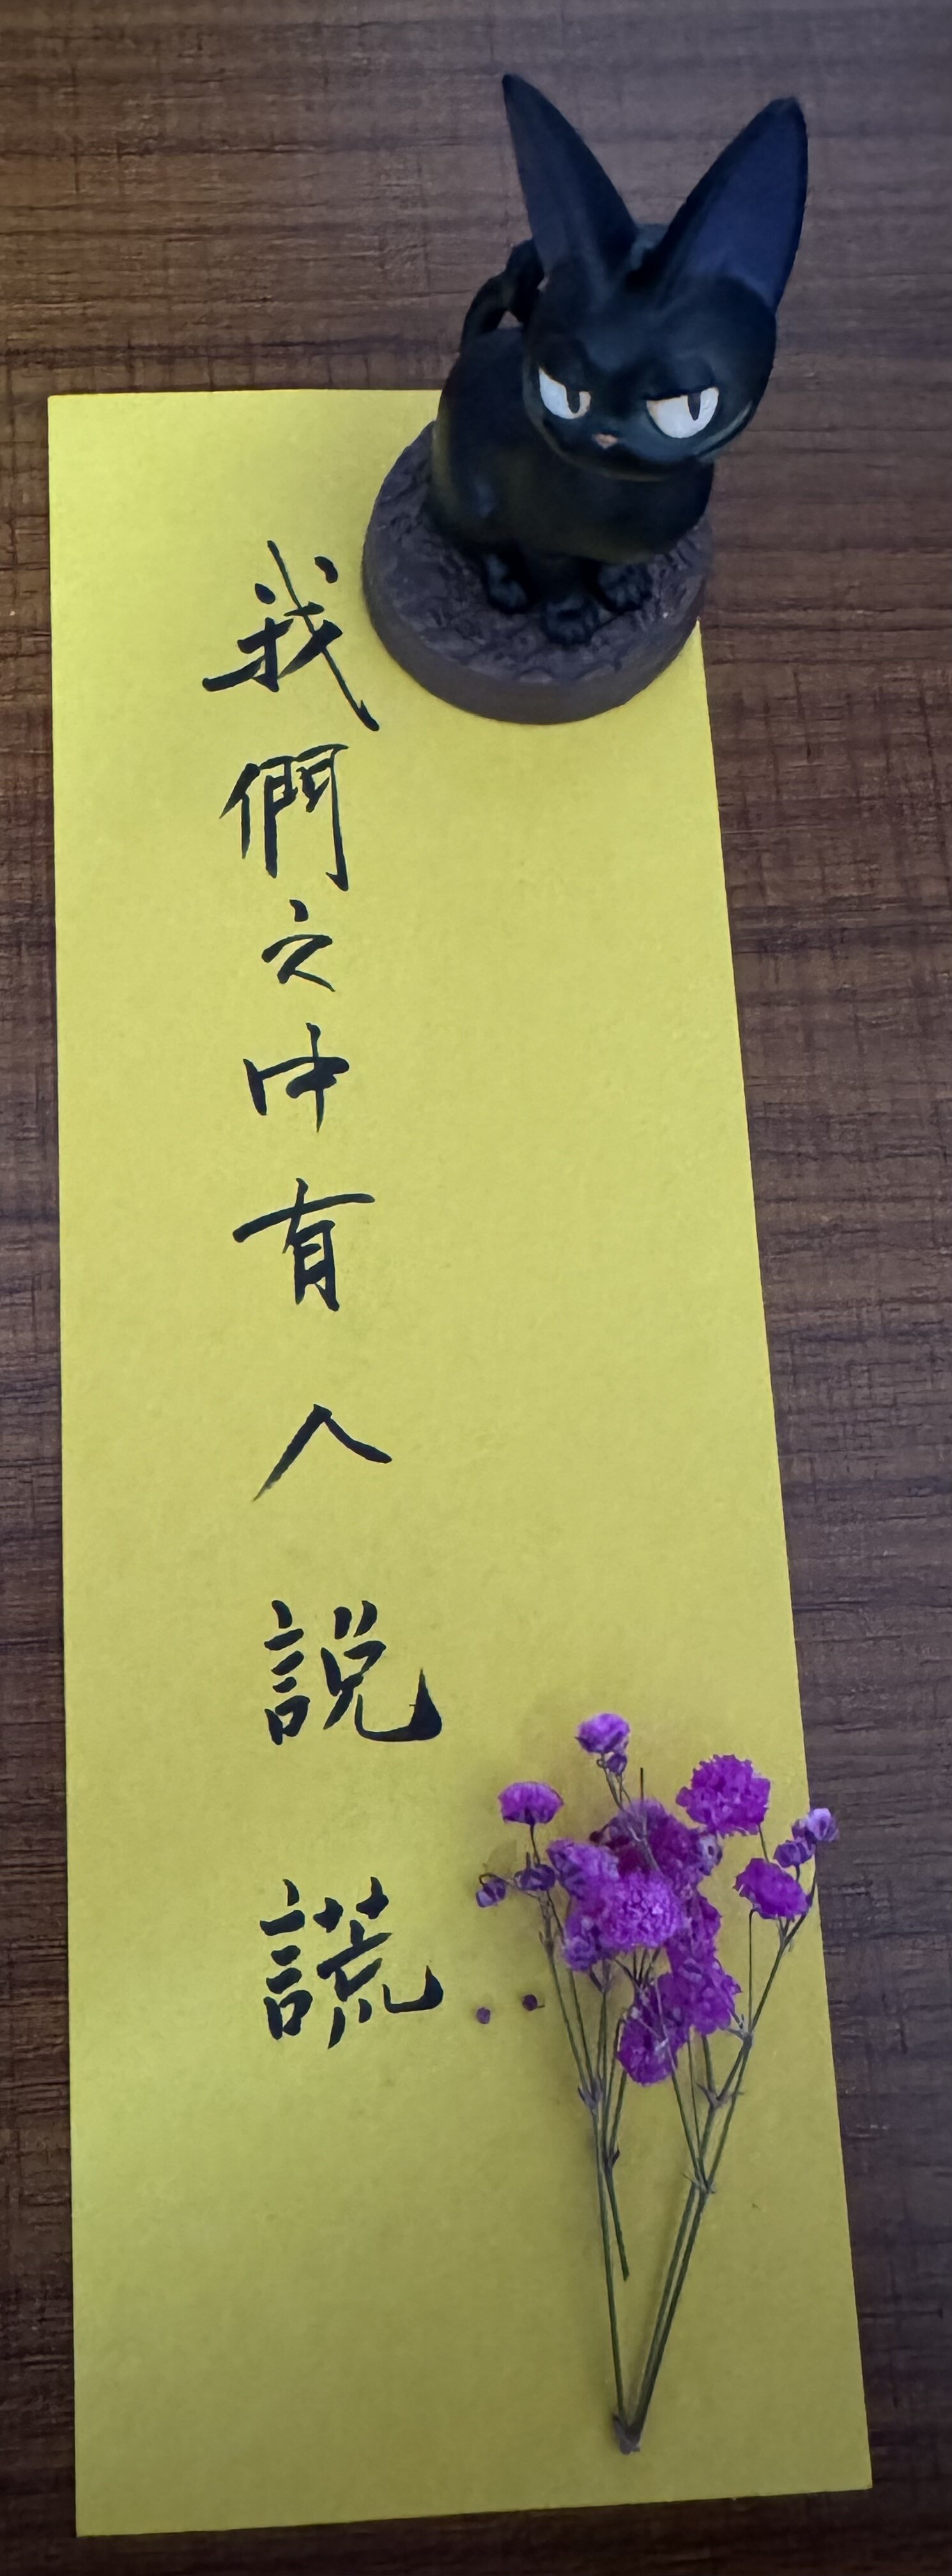 我們之中有人説謊